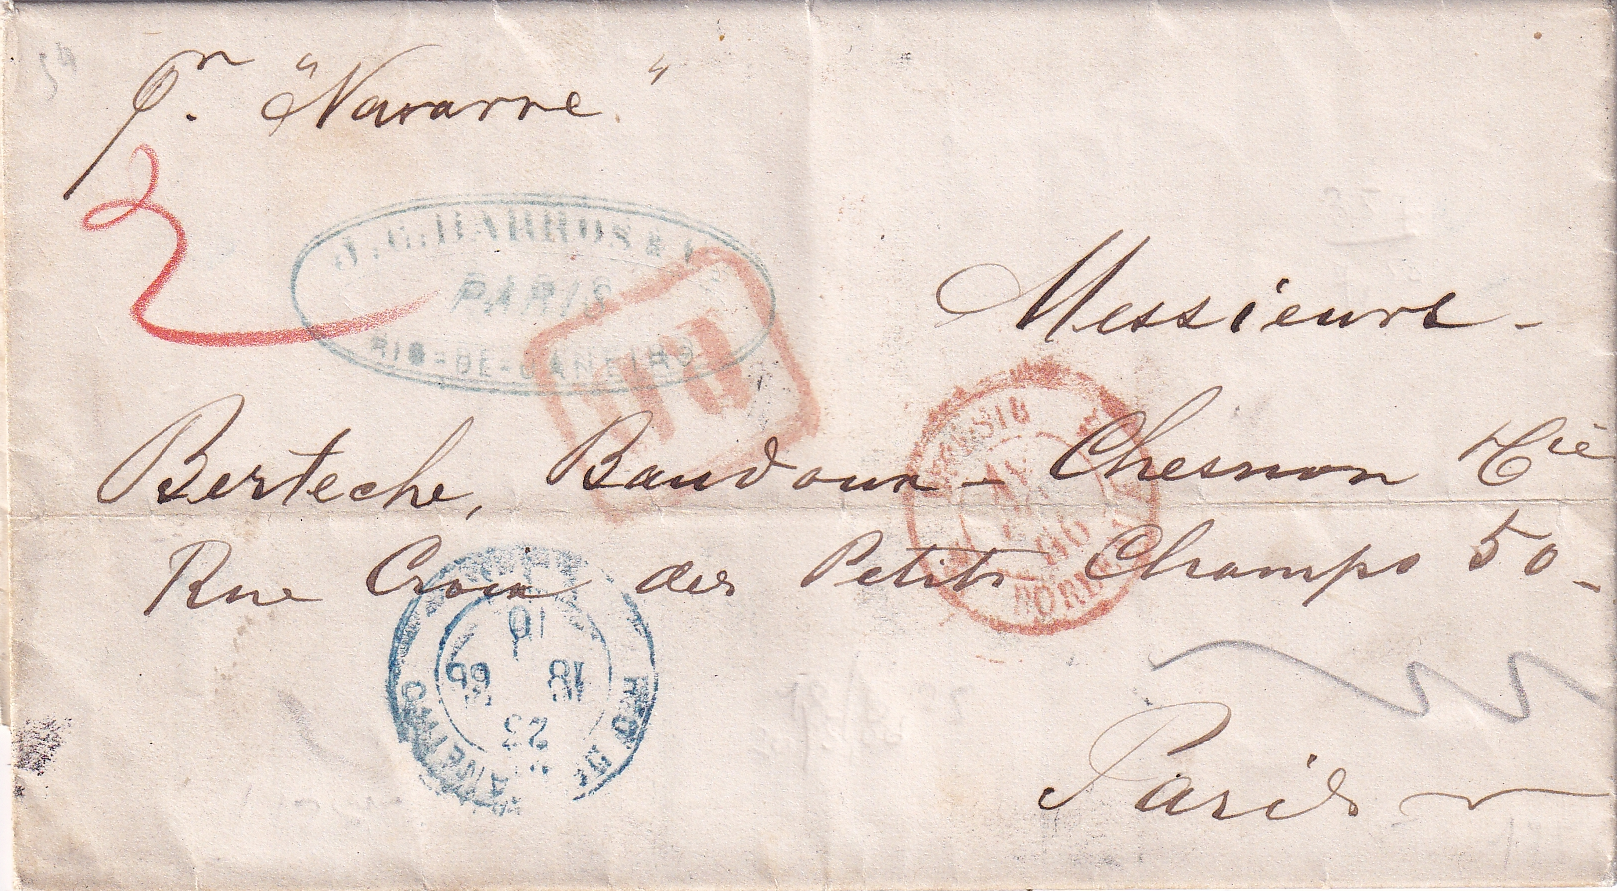 pr. "Navarre"
J. G. BARROS & C
PARIS
RIO-DE-JANEIRO
Messieurs -
Berteche, Baudoux - Chesnon & Cie
Rue Croix des Petits Champs 50 -
66
BORDEAUX
RIO DE JANEIRO
10
18 66
23
Paris